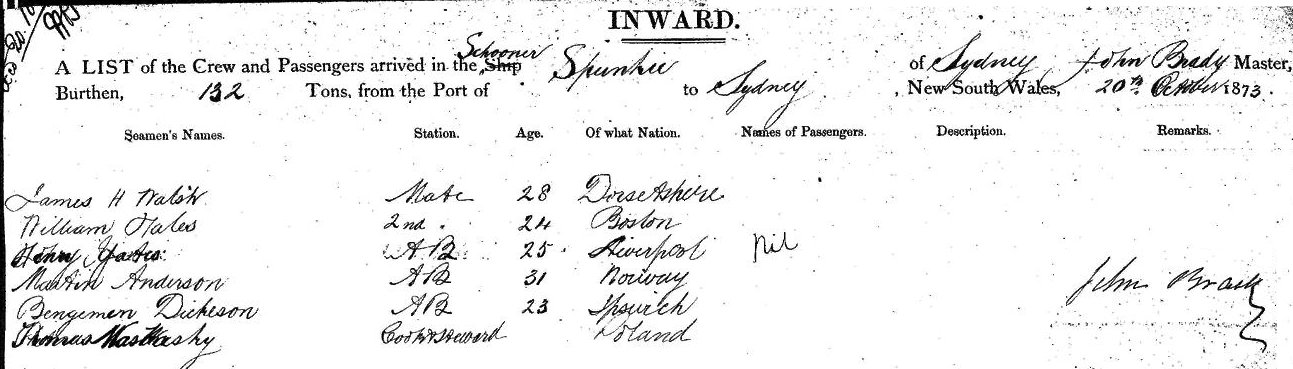 INWARD.
A LIST of the Crew and Passengers arrived in the Schooner Ship Spunkie of Sydney John Brady Master,
Burthen, 132 Tons, from the Port of to Sydney , New South Wales, 20th October 1873.
Seamen's Names. Station. Age. Of what Nation. Names of Passengers. Description. Remarks.
James H Walsh Mate 28 Dorsetshire
William Hales 2nd . 24 Boston
Henry Yates AB 25 Liverpool Nil
Martin Anderson AB 31 Norway
Bengemen Dickeson AB 23 Ipswich John Brady
Thomas Cook & Steward Poland